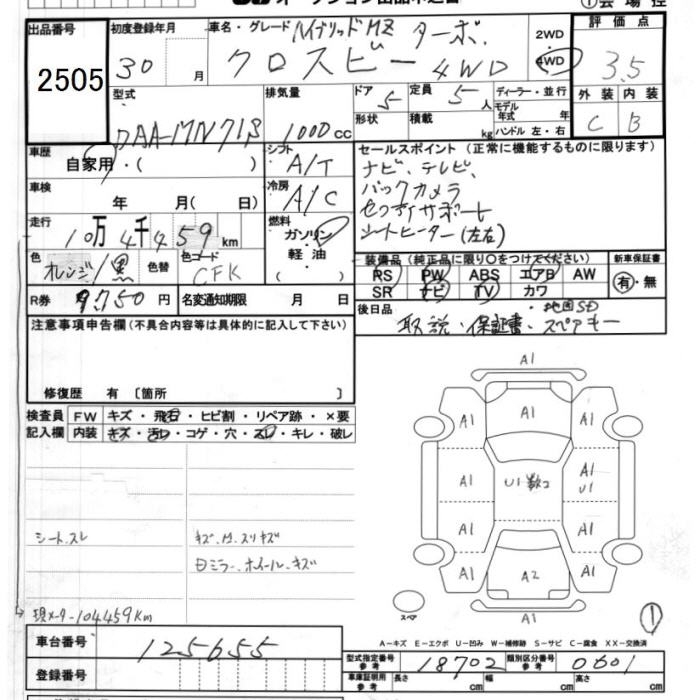 出品番号
2505
初度登録年月
30 月
車名・グレード ハイブリッドMZ ターボ.
クロスビー 4WD
2WD
4WD
評価点
3.5
外装 内装
C B
型式
DAA-MN71B
排気量
1000cc
ドア 5
形状
定員 5人
積載 kg
ディーラー・並行
モデル年式 年
ハンドル 左・右
車歴
自家用・( )
シフト
A/T
冷房
A/C
セールスポイント (正常に機能するものに限ります)
ナビ、テレビ、
バックカメラ
セフティサポート
シートヒーター(左右)
車検
年 月( 日)
走行
10万4千459km
燃料
ガソリン
軽油
( )
色
オレンジ/黒
色替
色コード
CFK
装備品 (純正品に限り○をつけてください)
RS PW ABS エアB AW
SR ナビ TV カワ
新車保証書
有・無
R券 9,750円
名変通知期限 月 日
後日品
・地図SD
取説・保証書・スペアキー
注意事項申告欄(不具合内容等は具体的に記入して下さい)
修復歴 有 〔箇所 〕
検査員
記入欄
FW キズ・飛石・ヒビ割・リペア跡・×要
内装 キズ・汚レ・コゲ・穴・スレ・キレ・破レ
シート.スレ
キズ.凹.スリキズ
日ミラー.ホイール.キズ
現メーター104459Km
A1
A1
A1
A1
A1
U1数コ
A1
U1
A1
A1
A1
A1
A2
A1
A1
スペア
1
A-キズ E-エクボ U-凹み W-補修跡 S-サビ C-腐食 XX-交換済
車台番号 125655
登録番号
型式指定番号
参考
18702
類別区分番号
参考
0601
車庫証明用
参考
長さ cm
幅 cm
高さ cm